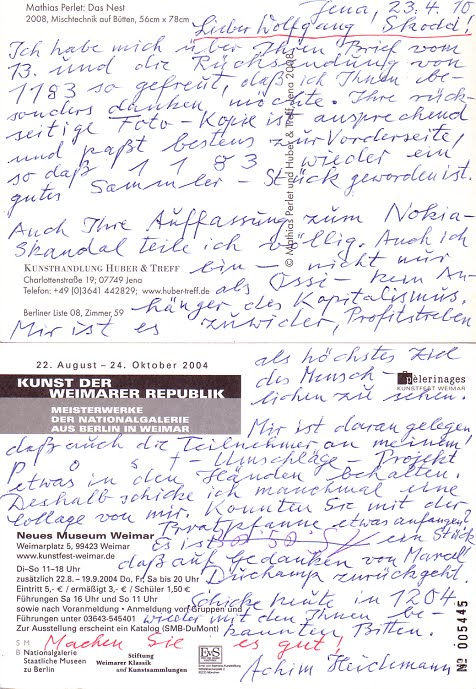 Mathias Perlet: Das Nest
2008, Mischtechnik auf Bütten, 56cm x 78cm
Jena, 23.4.10
Lieber Wolfgang Skodd!
Ich habe mich über Ihren Brief vom
13. und die Rücksendung von
1183 so gefreut, daß ich Ihnen be-
sonders danken möchte. Ihre rück-
seitige Foto-Kopie ist ansprechend
und paßt bestens zur Vorderseite,
so daß 1183 wieder ein
gutes Sammler-Stück geworden ist.
© Mathias Perlet und Huber & Treff, Jena 2008
Auch Ihre Auffassung zum Nokia-
Skandal teile ich völlig. Auch ich
bin - nicht nur
als Ossi - kein An-
hänger des Kapitalismus.
Mir ist es zuwider, Profitstreben
KUNSTHANDLUNG HUBER & TREFF
Charlottenstraße 19; 07749 Jena
Telefon: +49 (0)3641 442829; www.huber-treff.de
Berliner Liste 08, Zimmer, 59
als höchstes Ziel
des Mensch-
lichen zu sehen.
22. August – 24. Oktober 2004
KUNST DER
WEIMARER REPUBLIK
MEISTERWERKE
DER NATIONALGALERIE
AUS BERLIN IN WEIMAR
pèlerinages
KUNSTFEST WEIMAR
Mir ist daran gelegen,
daß auch die Teilnehmer an meinem
Post-Umschläge-Projekt
etwas in den Händen behalten.
Deshalb schicke ich manchmal eine
Collage von mir. Konnten Sie mit der
Bratpfanne etwas anfangen?
Es ist ein Stück
daß auf Gedanken von Marcel
Duchamp zurückgeht.
Schicke heute in 1204
wieder mit den Ihnen be-
kannten Bitten.
Machen Sie es gut!
Achim Heidemann
Neues Museum Weimar
Weimarplatz 5, 99423 Weimar
www.kunstfest-weimar.de
Di–So 11–18 Uhr
zusätzlich 22.8. – 19.9.2004 Do, Fr, Sa bis 20 Uhr
Eintritt 5,- € / ermäßigt 3,- € / Schüler 1,50 €
Führungen Sa 16 Uhr und So 11 Uhr
sowie nach Voranmeldung • Anmeldung von Gruppen und
Führungen unter 03643-545401
Zur Ausstellung erscheint ein Katalog (SMB-DuMont)
S M
B Nationalgalerie
Staatliche Museen
zu Berlin
Stiftung
Weimarer Klassik
und Kunstsammlungen
Nº 005445